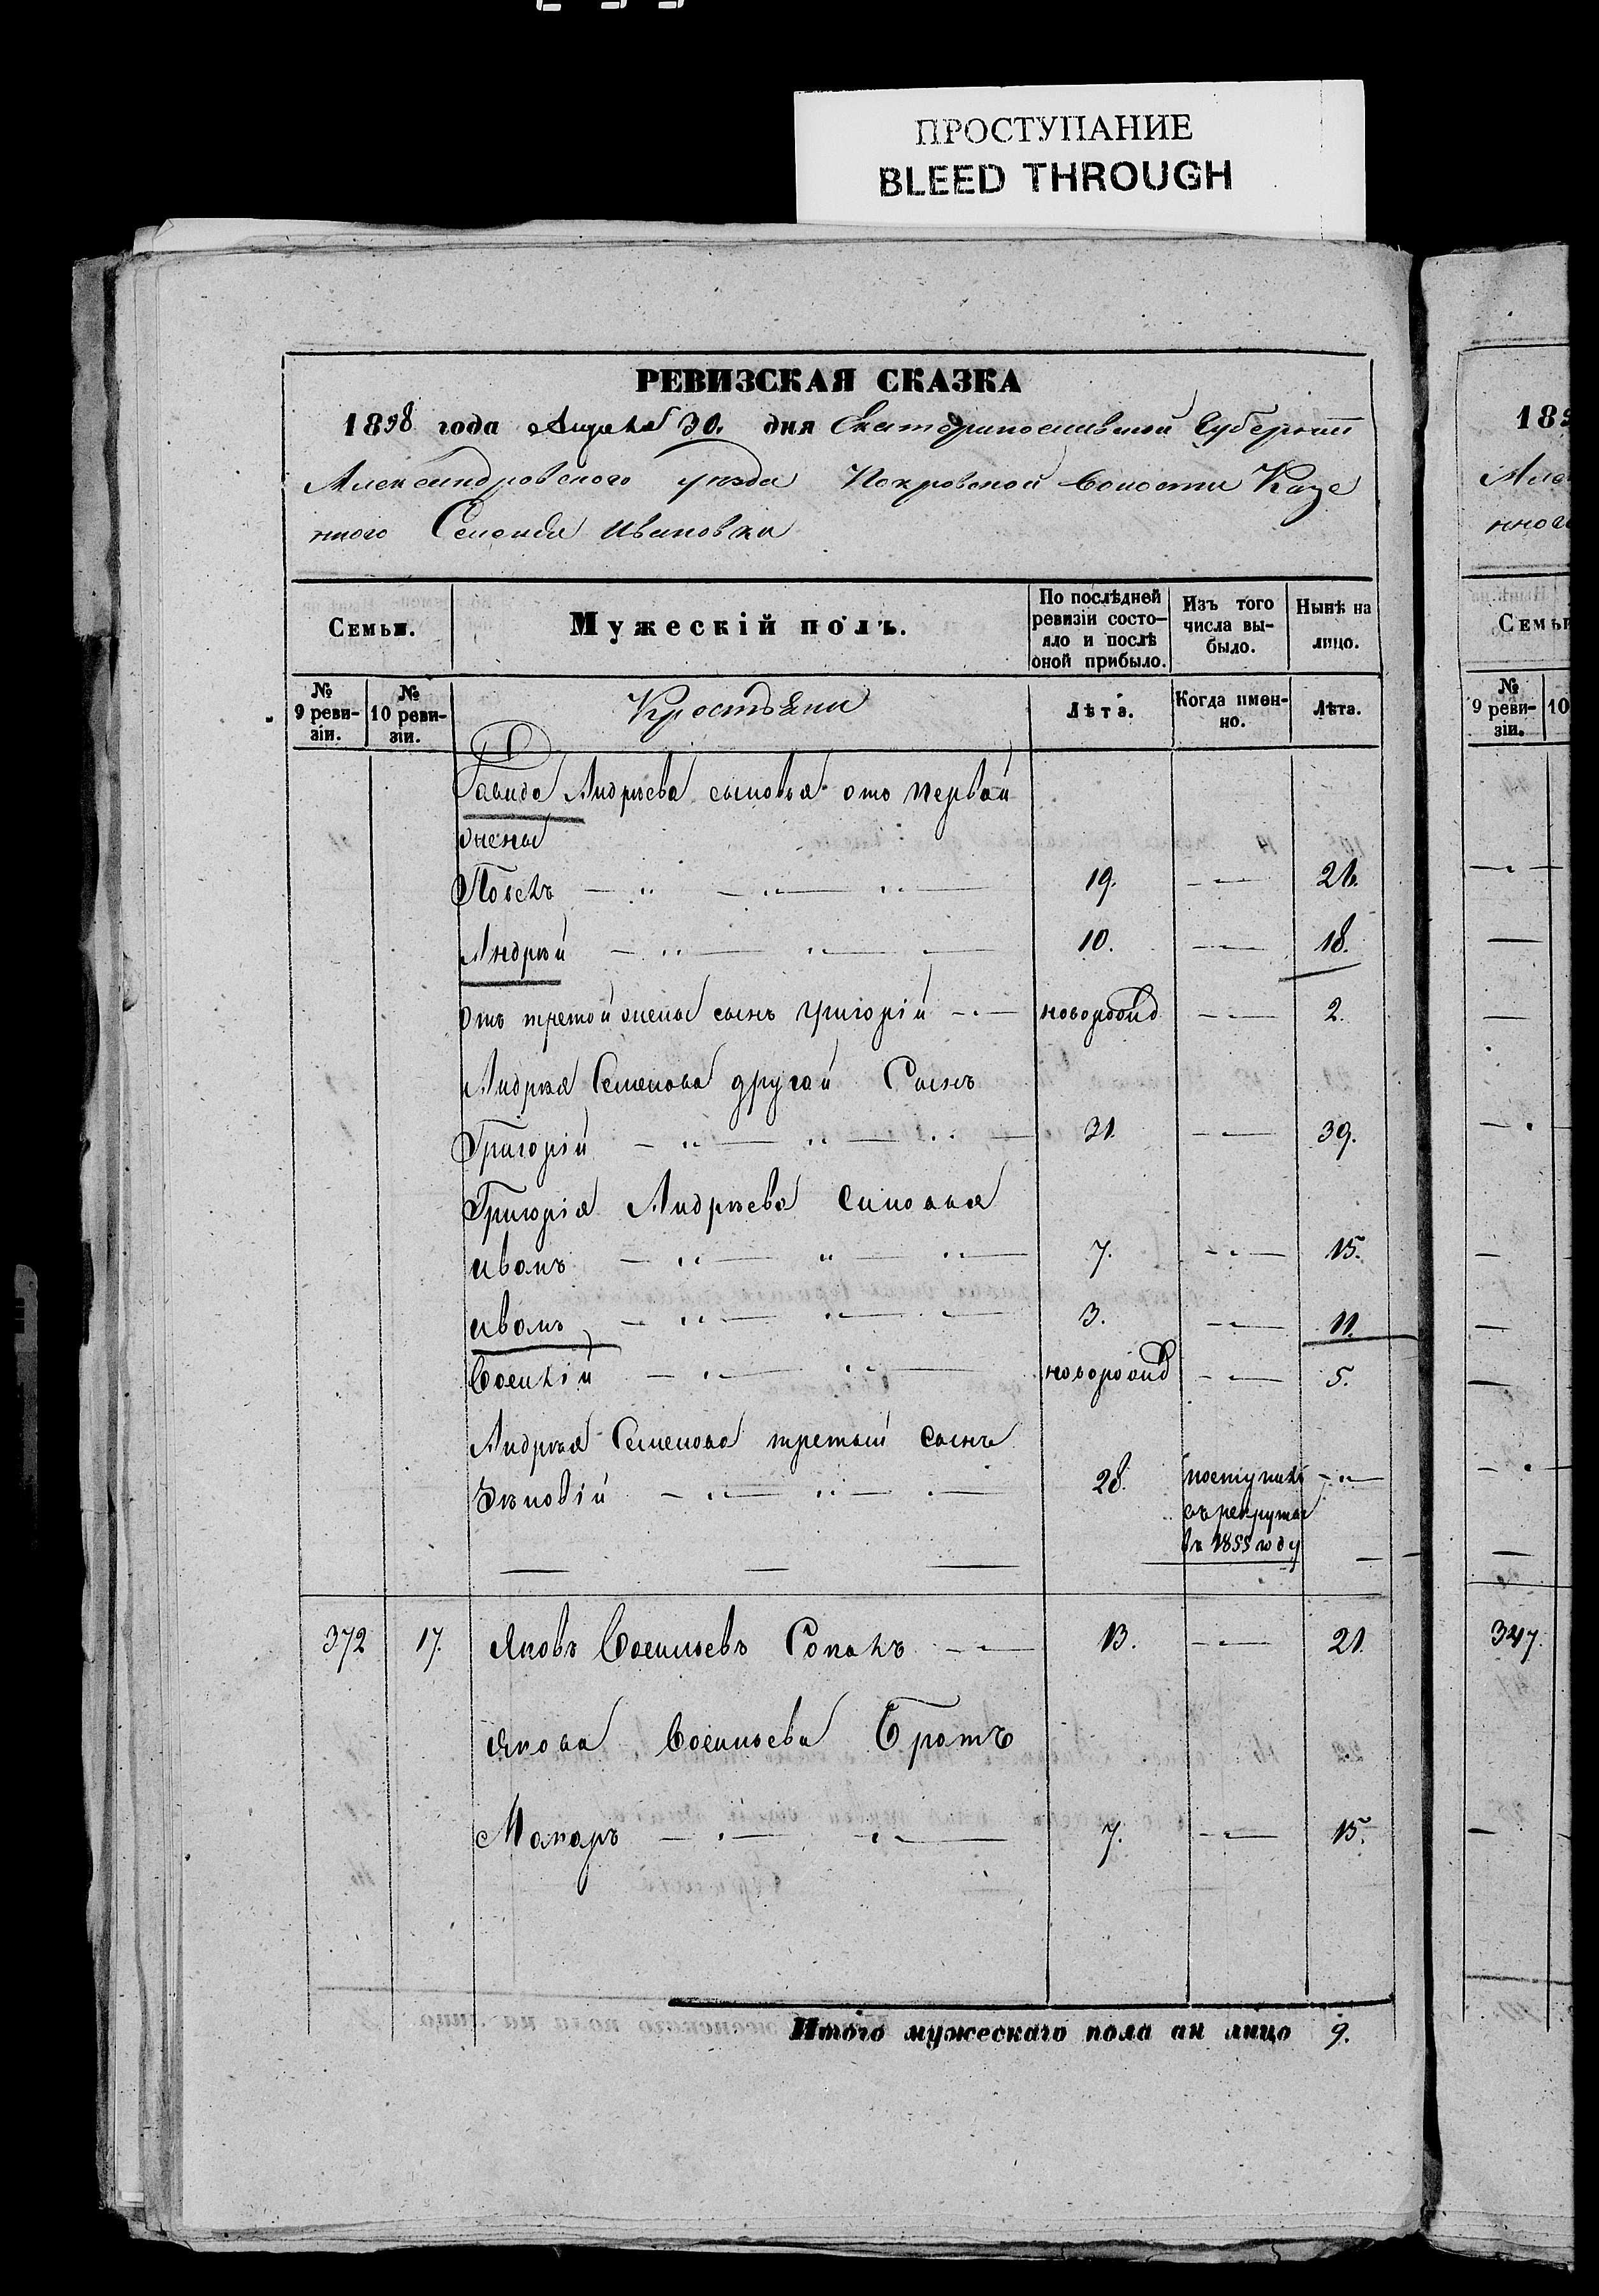 ПРОСТУПАНИЕ
BLEED THROUGH
РЕВИЗСКАЯ СКАЗКА
1858 года Апреля 30. дня Екатеринославской Губернии
Александровского уезда Покровской Волости Казе
нного Селенія Ивановки
Семьи.
Мужескій полъ.
По послѣдней ревизіи состо-
яло и послѣ
оной прибыло.
Изъ того
числа вы-
было.
Нынѣ на
лицо.
№
9 реви-
зіи.
№
10 реви-
зіи.
Крестьяни
Лѣта.
Когда имен-
но.
Лѣта.
Андрѣева сыновья отъ первой
жены
19. 21.
Андрѣй 10. 18.
отъ третой жены сынъ Григорій новорожд 2.
Андрѣя Семенова другой Сынъ
Григорій 31 39.
Григорія Андрѣева Синовья
Иванъ 7. 15.
Иванъ 3. 11.
Василій новорожд 5.
Андрѣя Семенова третий сынъ
Зѣновій 28. поступилъ
въ рекруты
въ 1855 году
372 17. Яковъ Васильевъ 13. 21.
Якова Васильева Братъ
Макаръ 7. 15.
Итого мужескаго пола ан лицо 9.
185
нного
Семьи
№
9 реви-
зіи.
10
347.